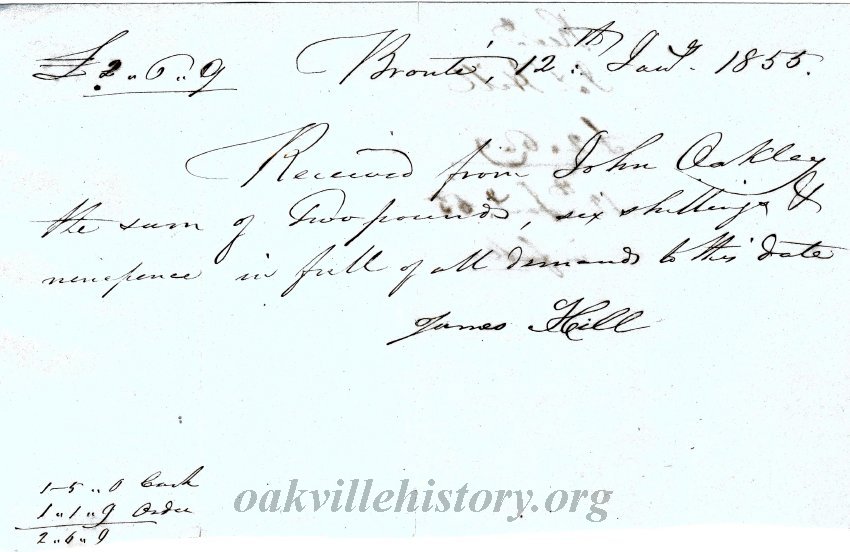 £2 〃 6 〃 9 Bronté, 12th Jany. 1855.
Received from John Oakley
the sum of Two pounds, six shillings &
ninepence in full of all demands to this date
James Hill
1–5 〃 0 Cash
1 〃 1 〃 9 Order
2 〃 6 〃 9
oakvillehistory.org